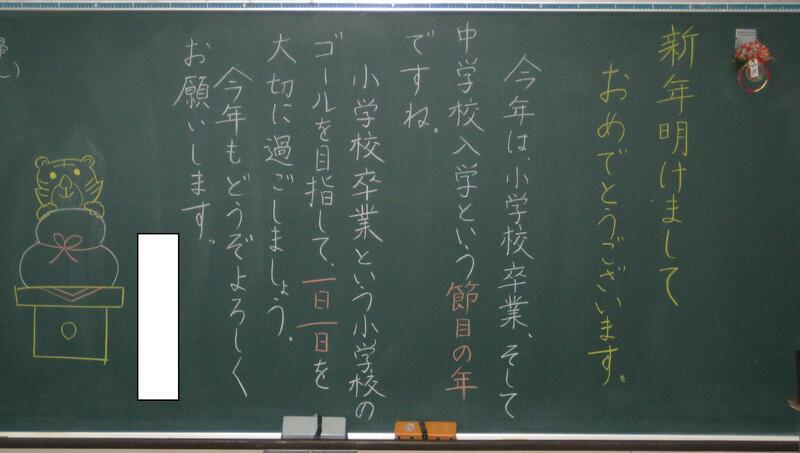 新年明けまして
おめでとうございます。
今年は、小学校卒業、そして
中学校入学という節目の年
ですね。
小学校卒業という小学校の
ゴールを目指して、一日一日を
大切に過ごしましょう。
今年もどうぞよろしく
お願いします。